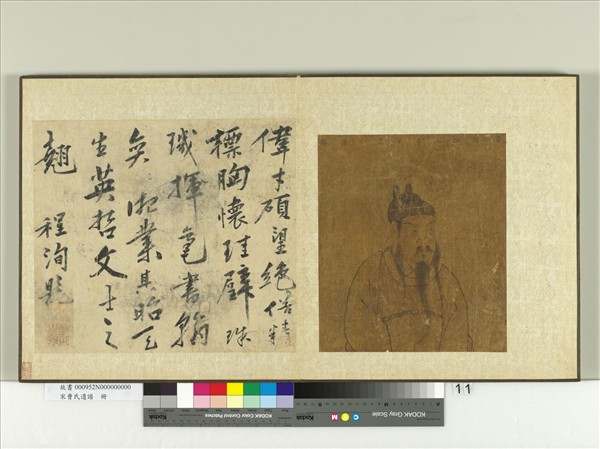 偉才碩望絕俗
標胸懷珪璧珠
璣揮毫書翰
奕相業其昭天
生英哲文士之
翹 程洵題
故書 000952N000000000
宋曹氏遺譜 冊
KODAK Color Control Patches
KODAK Gray Scale
C M Y
11